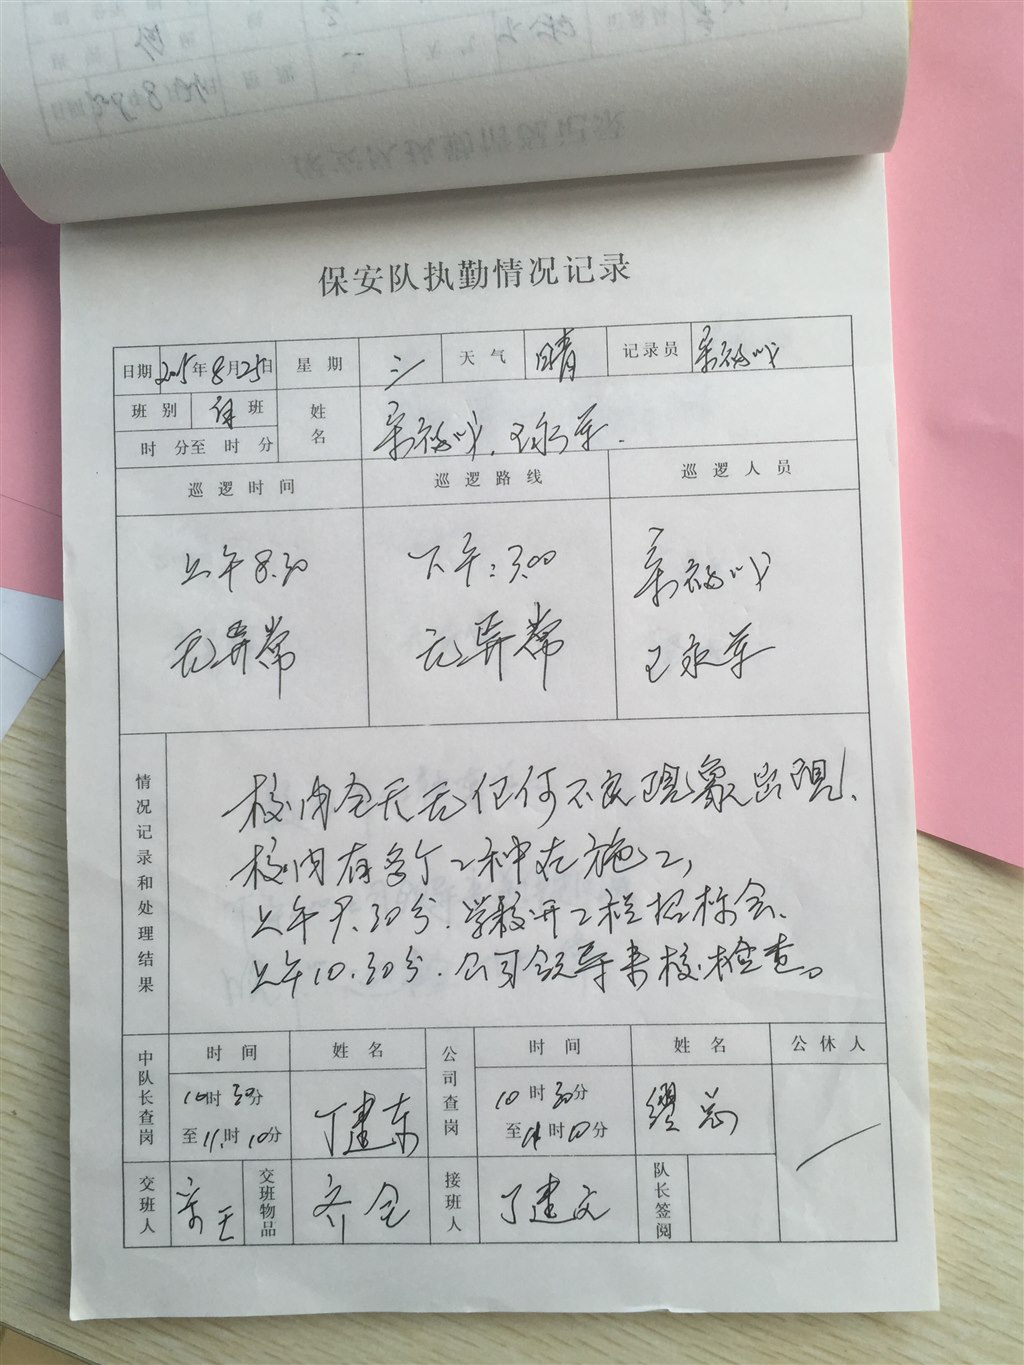 保安队执勤情况记录
日期 2015年8月25日 星期 三 天气 晴 记录员
班别 班 姓名 王永军.
时 分至 时 分
巡逻时间 巡逻路线 巡逻人员
上午8.30 下午:3.00
无异常 无异常 王永军
情况记录和处理结果
校内全天无任何不良现象出现!
校内有多个工种在施工,
上午9.30分.学校开工程招标会、
上午10.30分.公司领导来校检查。
中队长查岗 时间 姓名 公司查岗 时间 姓名 公休人
10时30分 丁建东 10时30分
至11时10分 至11时10分
交班人 宋王 交班物品 齐全 接班人 丁建文 队长签阅